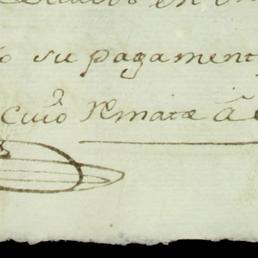 en
o su pagament
cuio Remate â